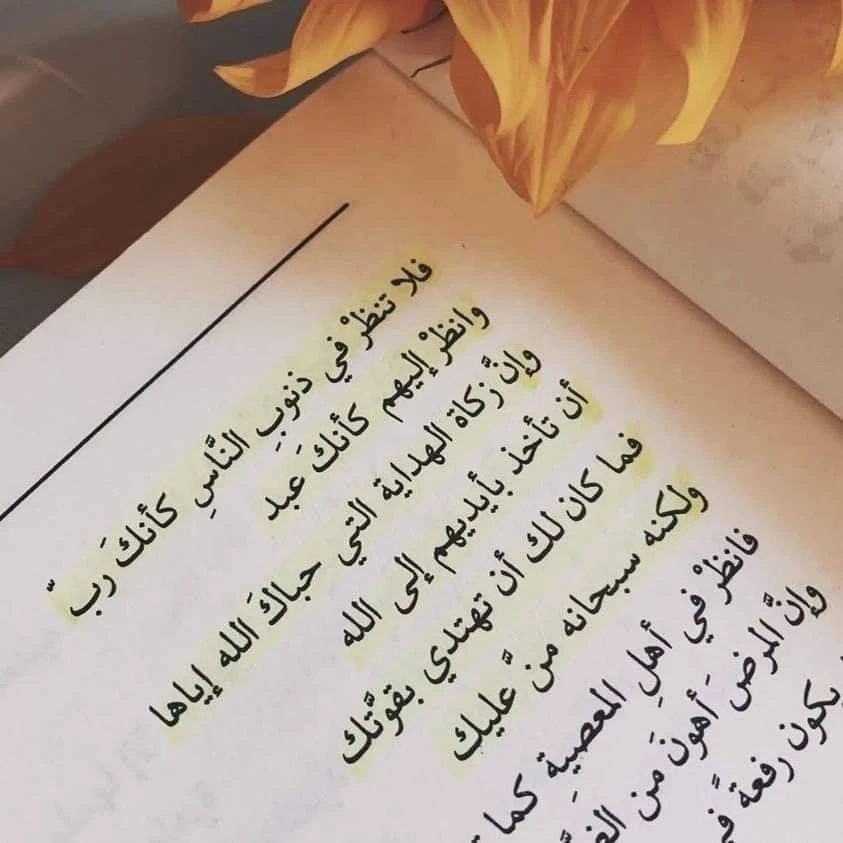 فلا تنظرْ في ذنوبِ النَّاسِ كأنكَ ربّ
وانظرْ إليهم كأنكَ عبد
وإنَّ زكاة الهداية التي حباكَ الله إياها
أن تأخذ بأيديهم إلى الله
فما كان لك أن تهتدي بقوَّتك
ولكنه سبحانه منَّ عليك
فانظرْ في أهلِ المعصيةِ كما
وإنَّ المرضَ أهونَ من
يكون رفعةً